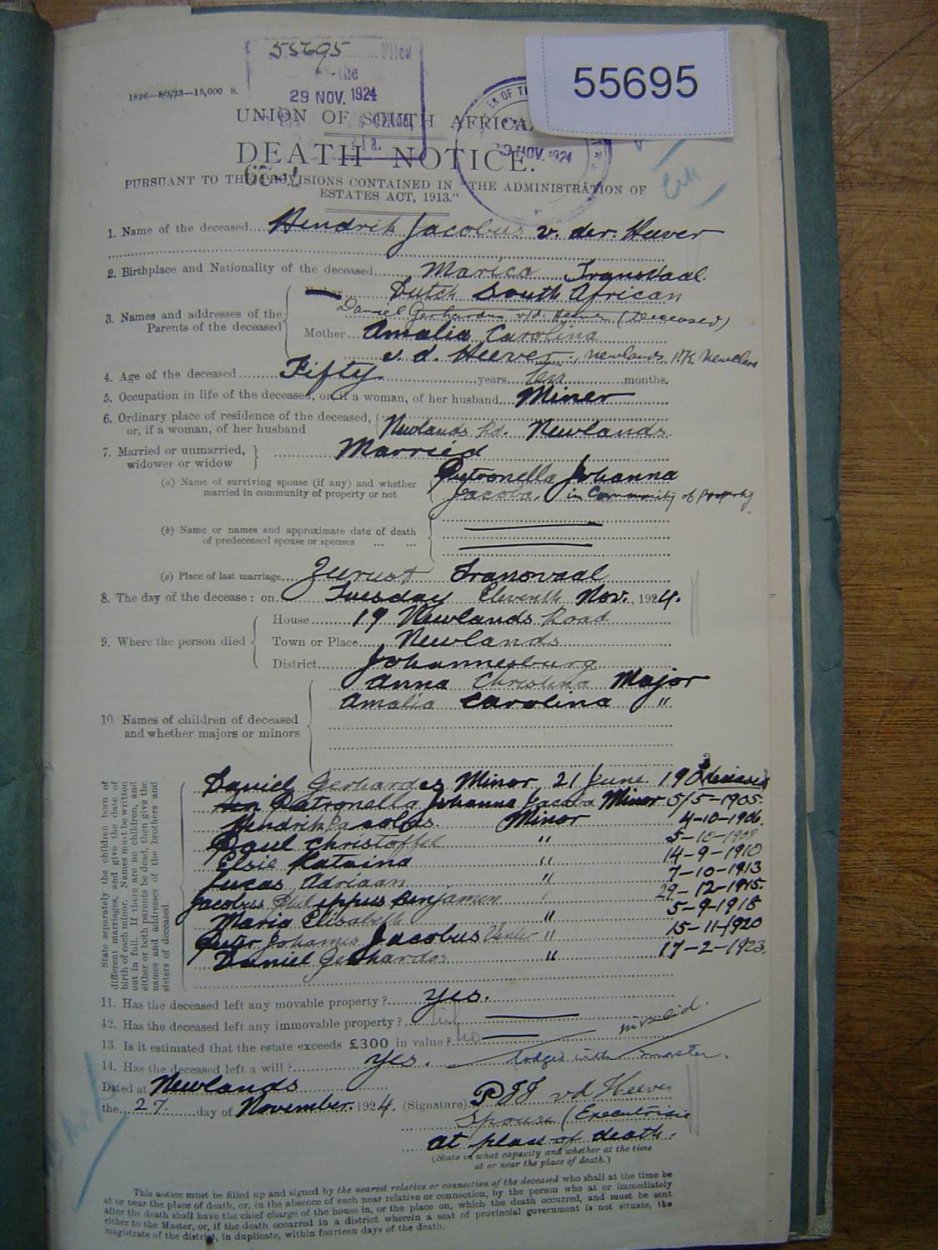 55695 Filed
the
29 NOV. 1924
55695
1826—8/3/23—15,000 S.
UNION OF SOUTH AFRICA.
DEATH NOTICE.
NOV. 1924
PURSUANT TO THE PROVISIONS CONTAINED IN "THE ADMINISTRATION OF
ESTATES ACT, 1913."
1. Name of the deceased Hendrik Jacobus v. der. Heever
2. Birthplace and Nationality of the deceased Marico Transvaal
Dutch South African
3. Names and addresses of the Parents of the deceased
Daniel Gerhardus v/d. Heever (Deceased)
Mother Amalia Carolina
v. d. Heever, Newlands Newlands
4. Age of the deceased Fifty years ten months.
5. Occupation in life of the deceased, or if a woman, of her husband Miner
6. Ordinary place of residence of the deceased, or, if a woman, of her husband Newlands Rd. Newlands
7. Married or unmarried, widower or widow Married
(a) Name of surviving spouse (if any) and whether married in community of property or not Petronella Johanna
Jacoba, in Community of Property
(b) Name or names and approximate date of death of predeceased spouse or spouses
(c) Place of last marriage Zeerust Transvaal
8. The day of the decease: on Tuesday Eleventh Nov. 1924.
House 19 Newlands Road
9. Where the person died Town or Place Newlands
District Johannesburg
10. Names of children of deceased and whether majors or minors
Anna Christina Major
Amalia Carolina "
State separately the children born of different marriages, and give the date of birth of each minor. Names must be written out in full. If there are no children, and either or both parents be dead, then give the names and addresses of the brothers and sisters of deceased.
Daniel Gerhardes Minor 21 June Deceased
Petronella Johanna Jacoba Minor 5/5-1905.
Hendrik Jacobus Minor 4-10-1906
Paul Christoffel " 5-10-1908
Elsie Kataina " 14-9-1910
Lucas Adriaan " 7-10-1913
Jacobus Philippus Benjamin " 29-12-1915.
Maria Elisabeth " 5-9-1918
Johannes Jacobus Venter " 15-11-1920
Daniel Gerhardos " 17-2-1923.
11. Has the deceased left any movable property? Yes.
12. Has the deceased left any immovable property?
13. Is it estimated that the estate exceeds £300 in value? no
14. Has the deceased left a will? yes. lodged with master. invalid.
Dated at Newlands
the 27 day of November 1924. (Signature) PJJ vd Heever
Spouse (Executrisie
at place of death.
(State in what capacity and whether at the time
at or near the place of death.)
This notice must be filled up and signed by the nearest relative or connection of the deceased who shall at the time be
at or near the place of death, or, in the absence of such near relative or connection, by the person who at or immediately
after the death shall have the chief charge of the house in, or the place on, which the death occurred, and must be sent
either to the Master, or, if the death occurred in a district wherein a seat of provincial government is not situate, the
magistrate of the district, in duplicate, within fourteen days of the death.